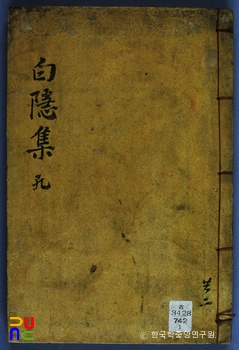 白隱集 乹
共二
奎
3428
742
1
© 한국학중앙연구원